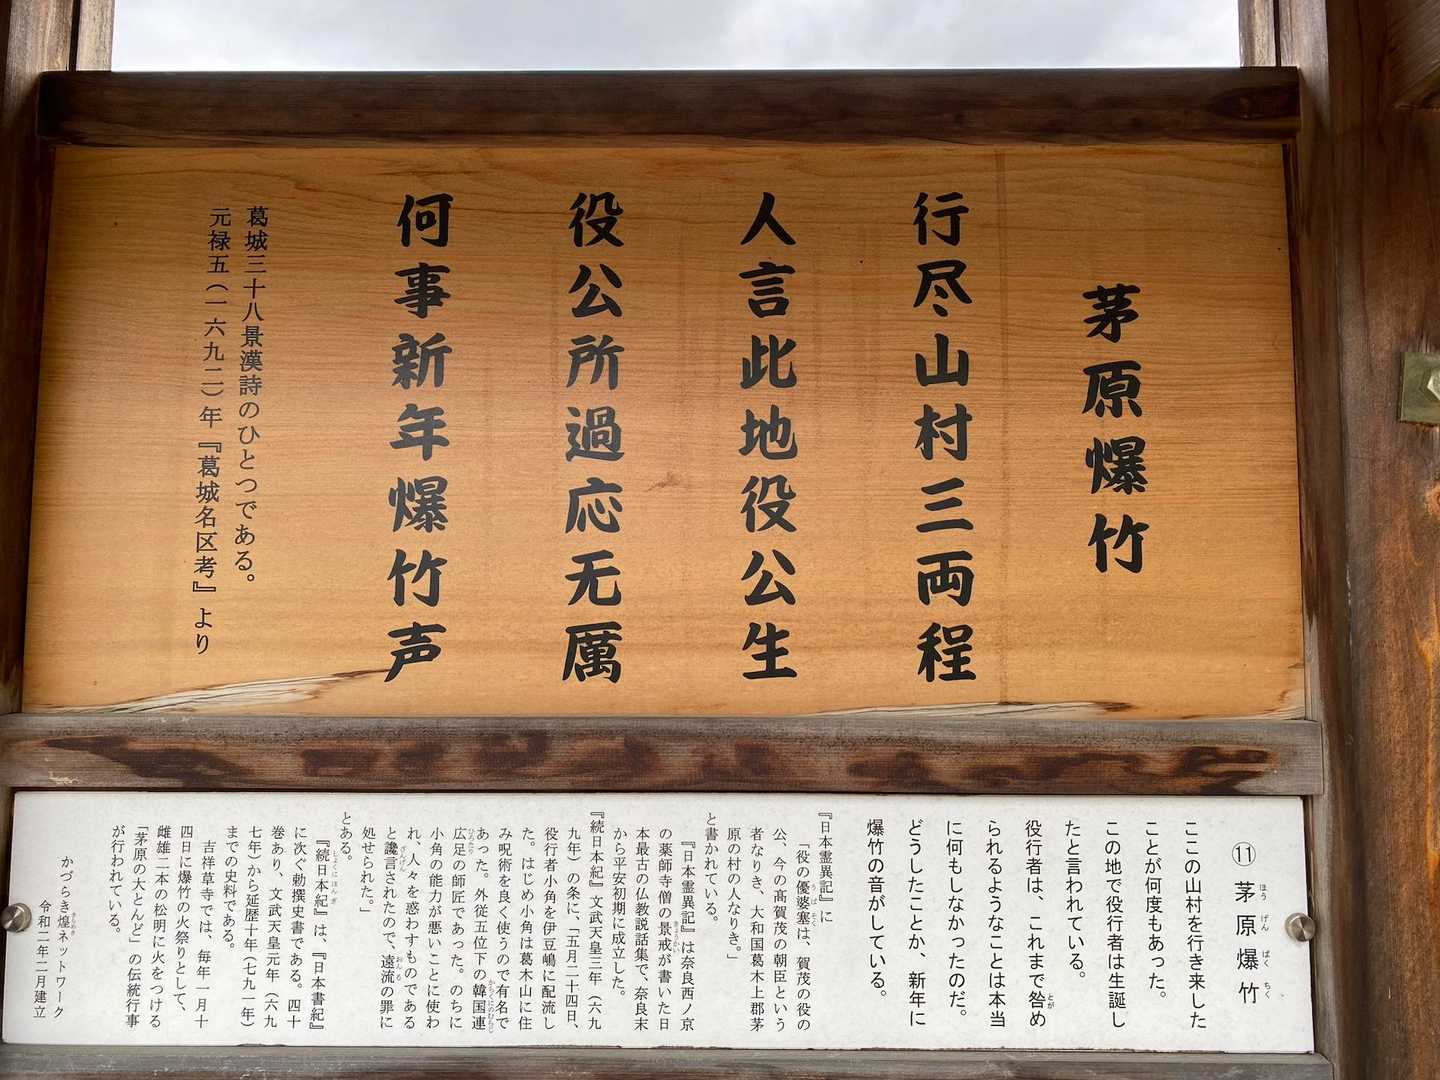 茅原爆竹
行尽山村三両程
人言此地役公生
役公所過応无厲
何事新年爆竹声
葛城三十八景漢詩のひとつである。
元禄五（一六九二）年『葛城名区考』より
⑪茅原爆竹
ほうげんばくちく
ここの山村を行き来した
ことが何度もあった。
この地で役行者は生誕し
たと言われている。
役行者は、これまで咎め
とが
られるようなことは本当
に何もしなかったのだ。
どうしたことか、新年に
爆竹の音がしている。
『日本霊異記』に
「役の優婆塞は、賀茂の役の
うばそく
公、今の高賀茂の朝臣という
者なりき、大和国葛木上郡茅
原の村の人なりき。」
と書かれている。
『日本霊異記』は奈良西ノ京
の薬師寺僧の景戒が書いた日
きょうかい
本最古の仏教説話集で、奈良末
から平安初期に成立した。
『続日本紀』文武天皇三年（六九
九年）の条に、「五月二十四日、
役行者小角を伊豆嶋に配流し
た。はじめ小角は葛木山に住
み呪術を良く使うので有名で
あった。外従五位下の韓国連
からくにのむらじ
広足の師匠であった。のちに
ひろたり
小角の能力が悪いことに使わ
れ、人々を惑わすものである
と讒言されたので、遠流の罪に
ざんげん
おんる
処せられた。」
とある。
『続日本紀』は、『日本書紀』
しょくにほんぎ
に次ぐ勅撰史書である。四十
巻あり、文武天皇元年（六九
七年）から延歴十年（七九一年）
までの史料である。
吉祥草寺では、毎年一月十
四日に爆竹の火祭りとして、
雌雄二本の松明に火をつける
「茅原の大とんど」の伝統行事
が行われている。
かづらき煌ネットワーク
きらめき
令和二年二月建立